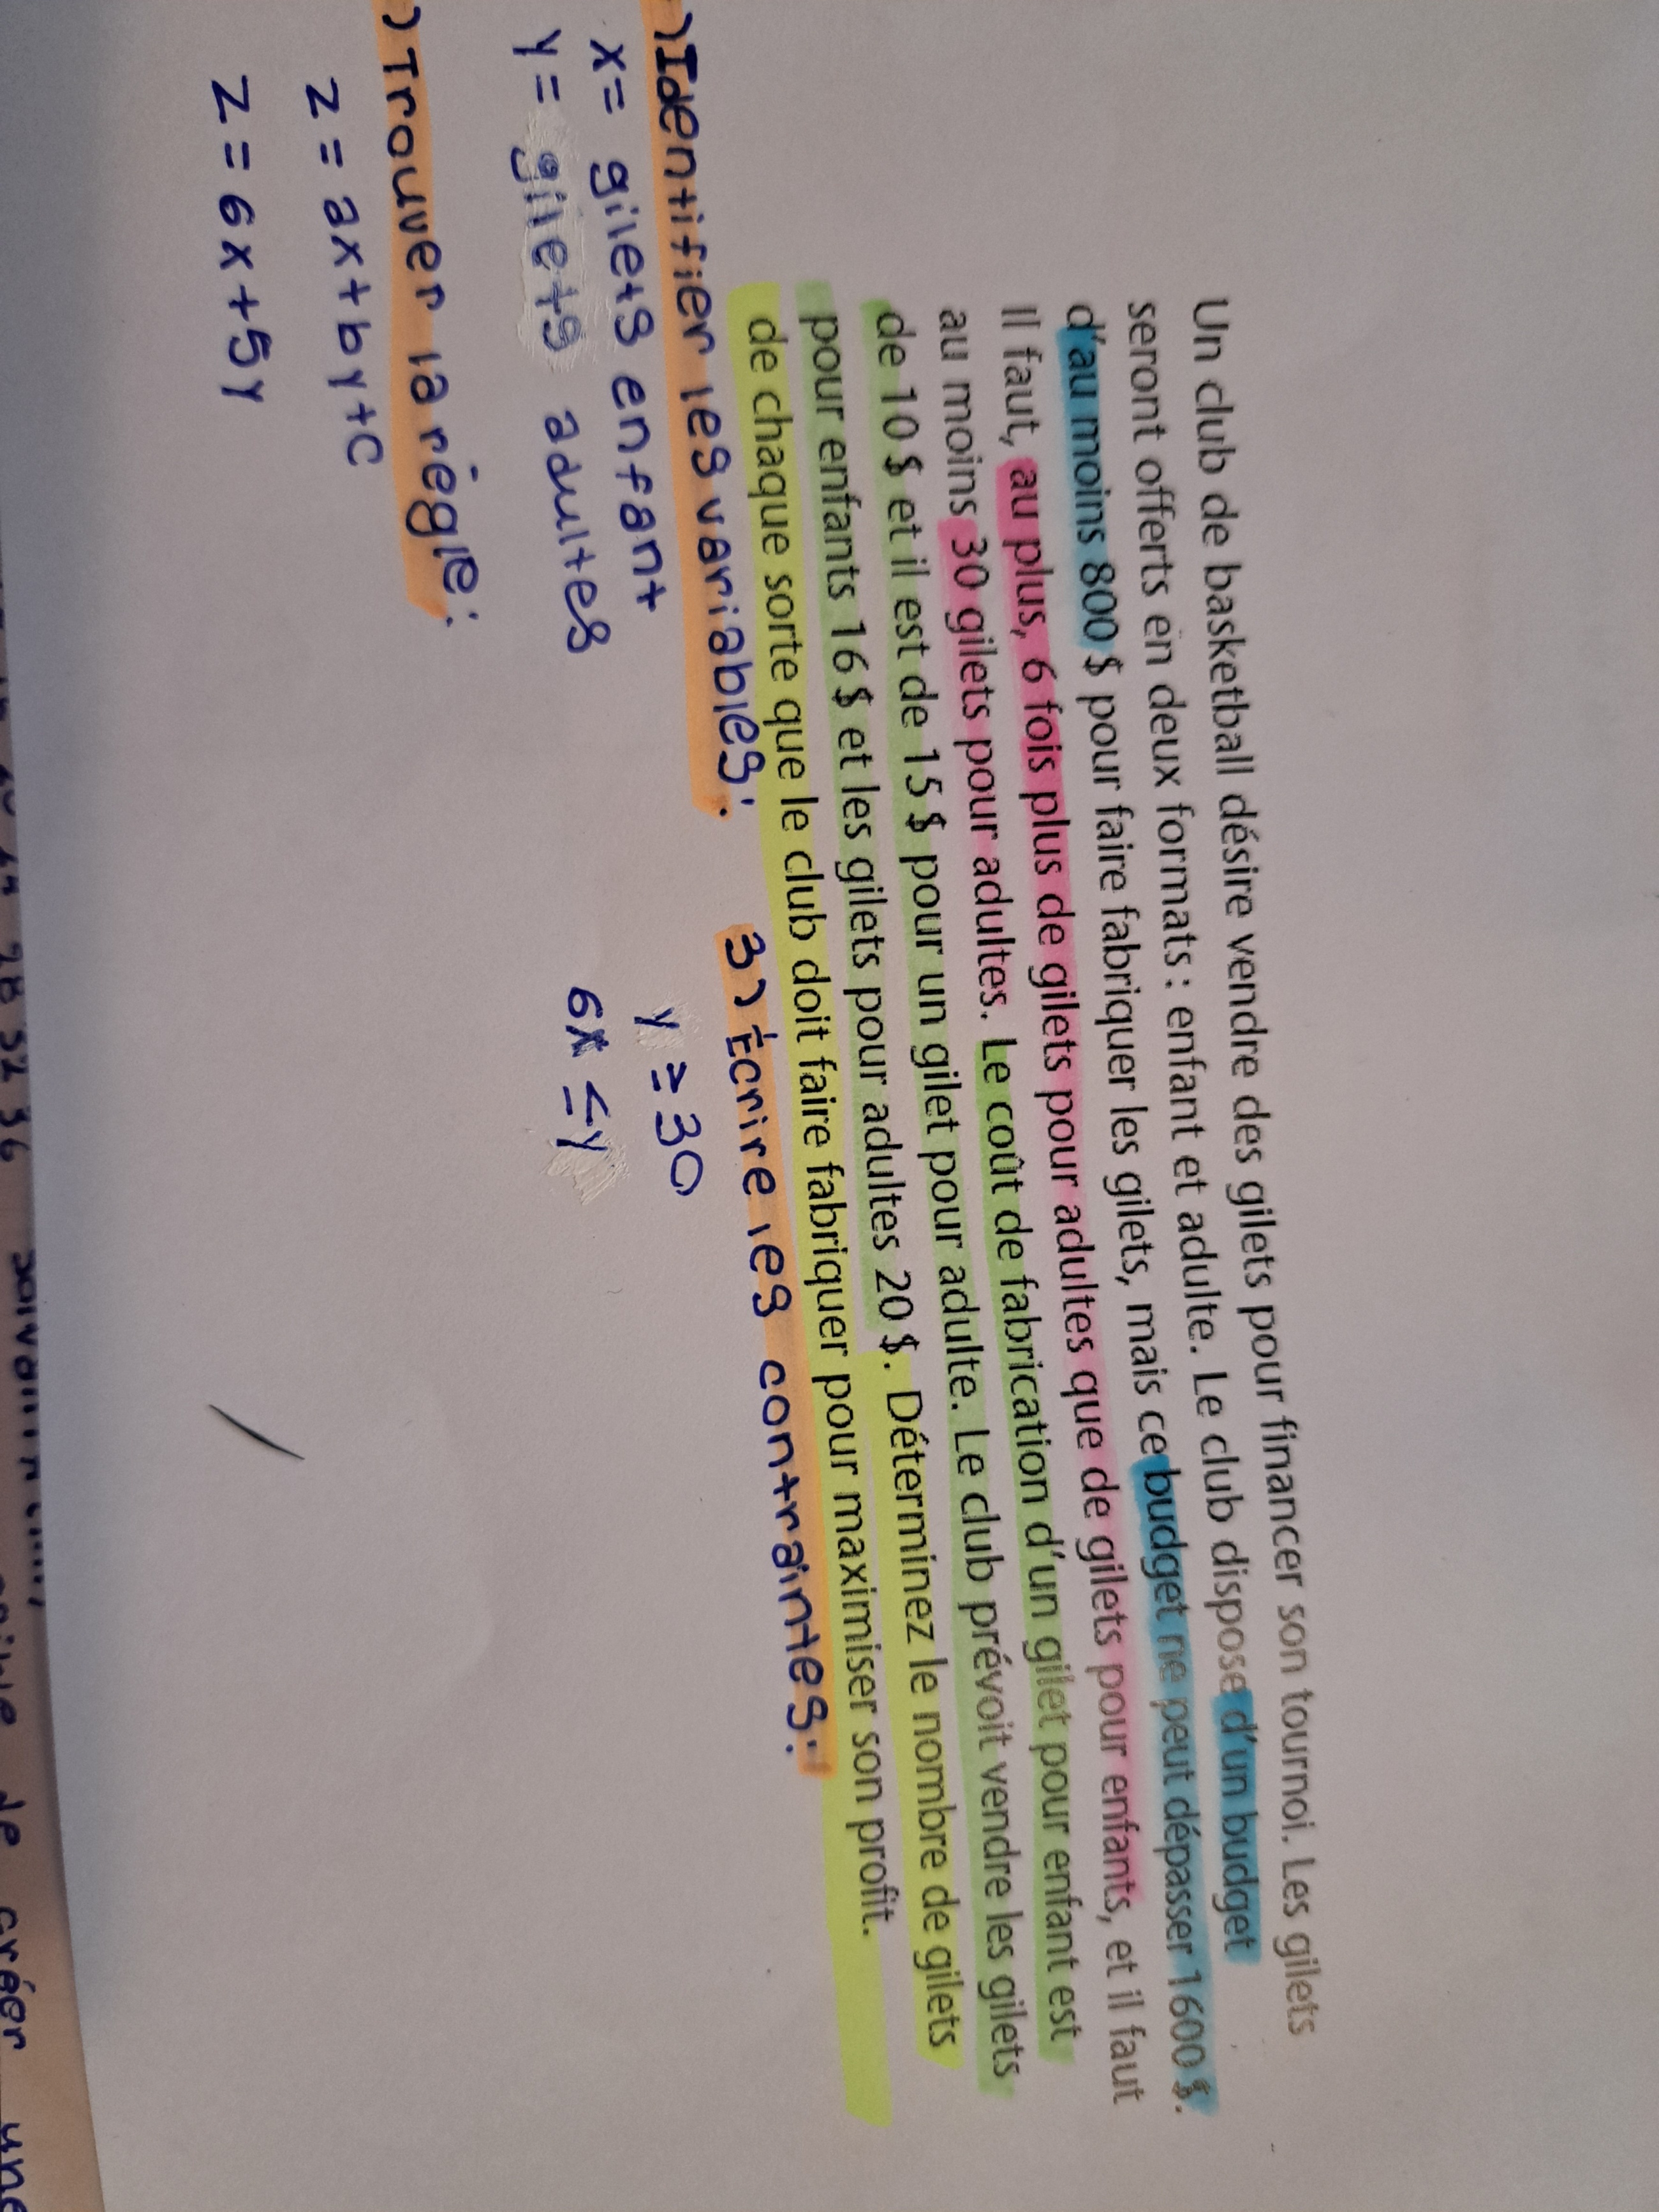 Un club de basketball désire vendre des gilets pour financer son tournoi. Les gilets
seront offerts en deux formats : enfant et adulte. Le club dispose d'un budget
d'au moins 800 $ pour faire fabriquer les gilets, mais ce budget ne peut dépasser 1600 $.
Il faut, au plus, 6 fois plus de gilets pour adultes que de gilets pour enfants, et il faut
au moins 30 gilets pour adultes. Le coût de fabrication d'un gilet pour enfant est
de 10 $ et il est de 15 $ pour un gilet pour adulte. Le club prévoit vendre les gilets
pour enfants 16 $ et les gilets pour adultes 20 $. Déterminez le nombre de gilets
de chaque sorte que le club doit faire fabriquer pour maximiser son profit.
) Identifier les variables:
x = gilets enfant
y = gilets adultes
) Trouver la règle:
z = ax + by + c
z = 6x + 5y
3) Écrire les contraintes:
y ≥ 30
6x ≤ y
28 32 36
de créer une